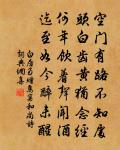 空門有路不知處
頭白齒黃猶念經
何年飲著聲聞酒
迄至如今醉未醒
白居易 鳥窠和尚詩
詞典網